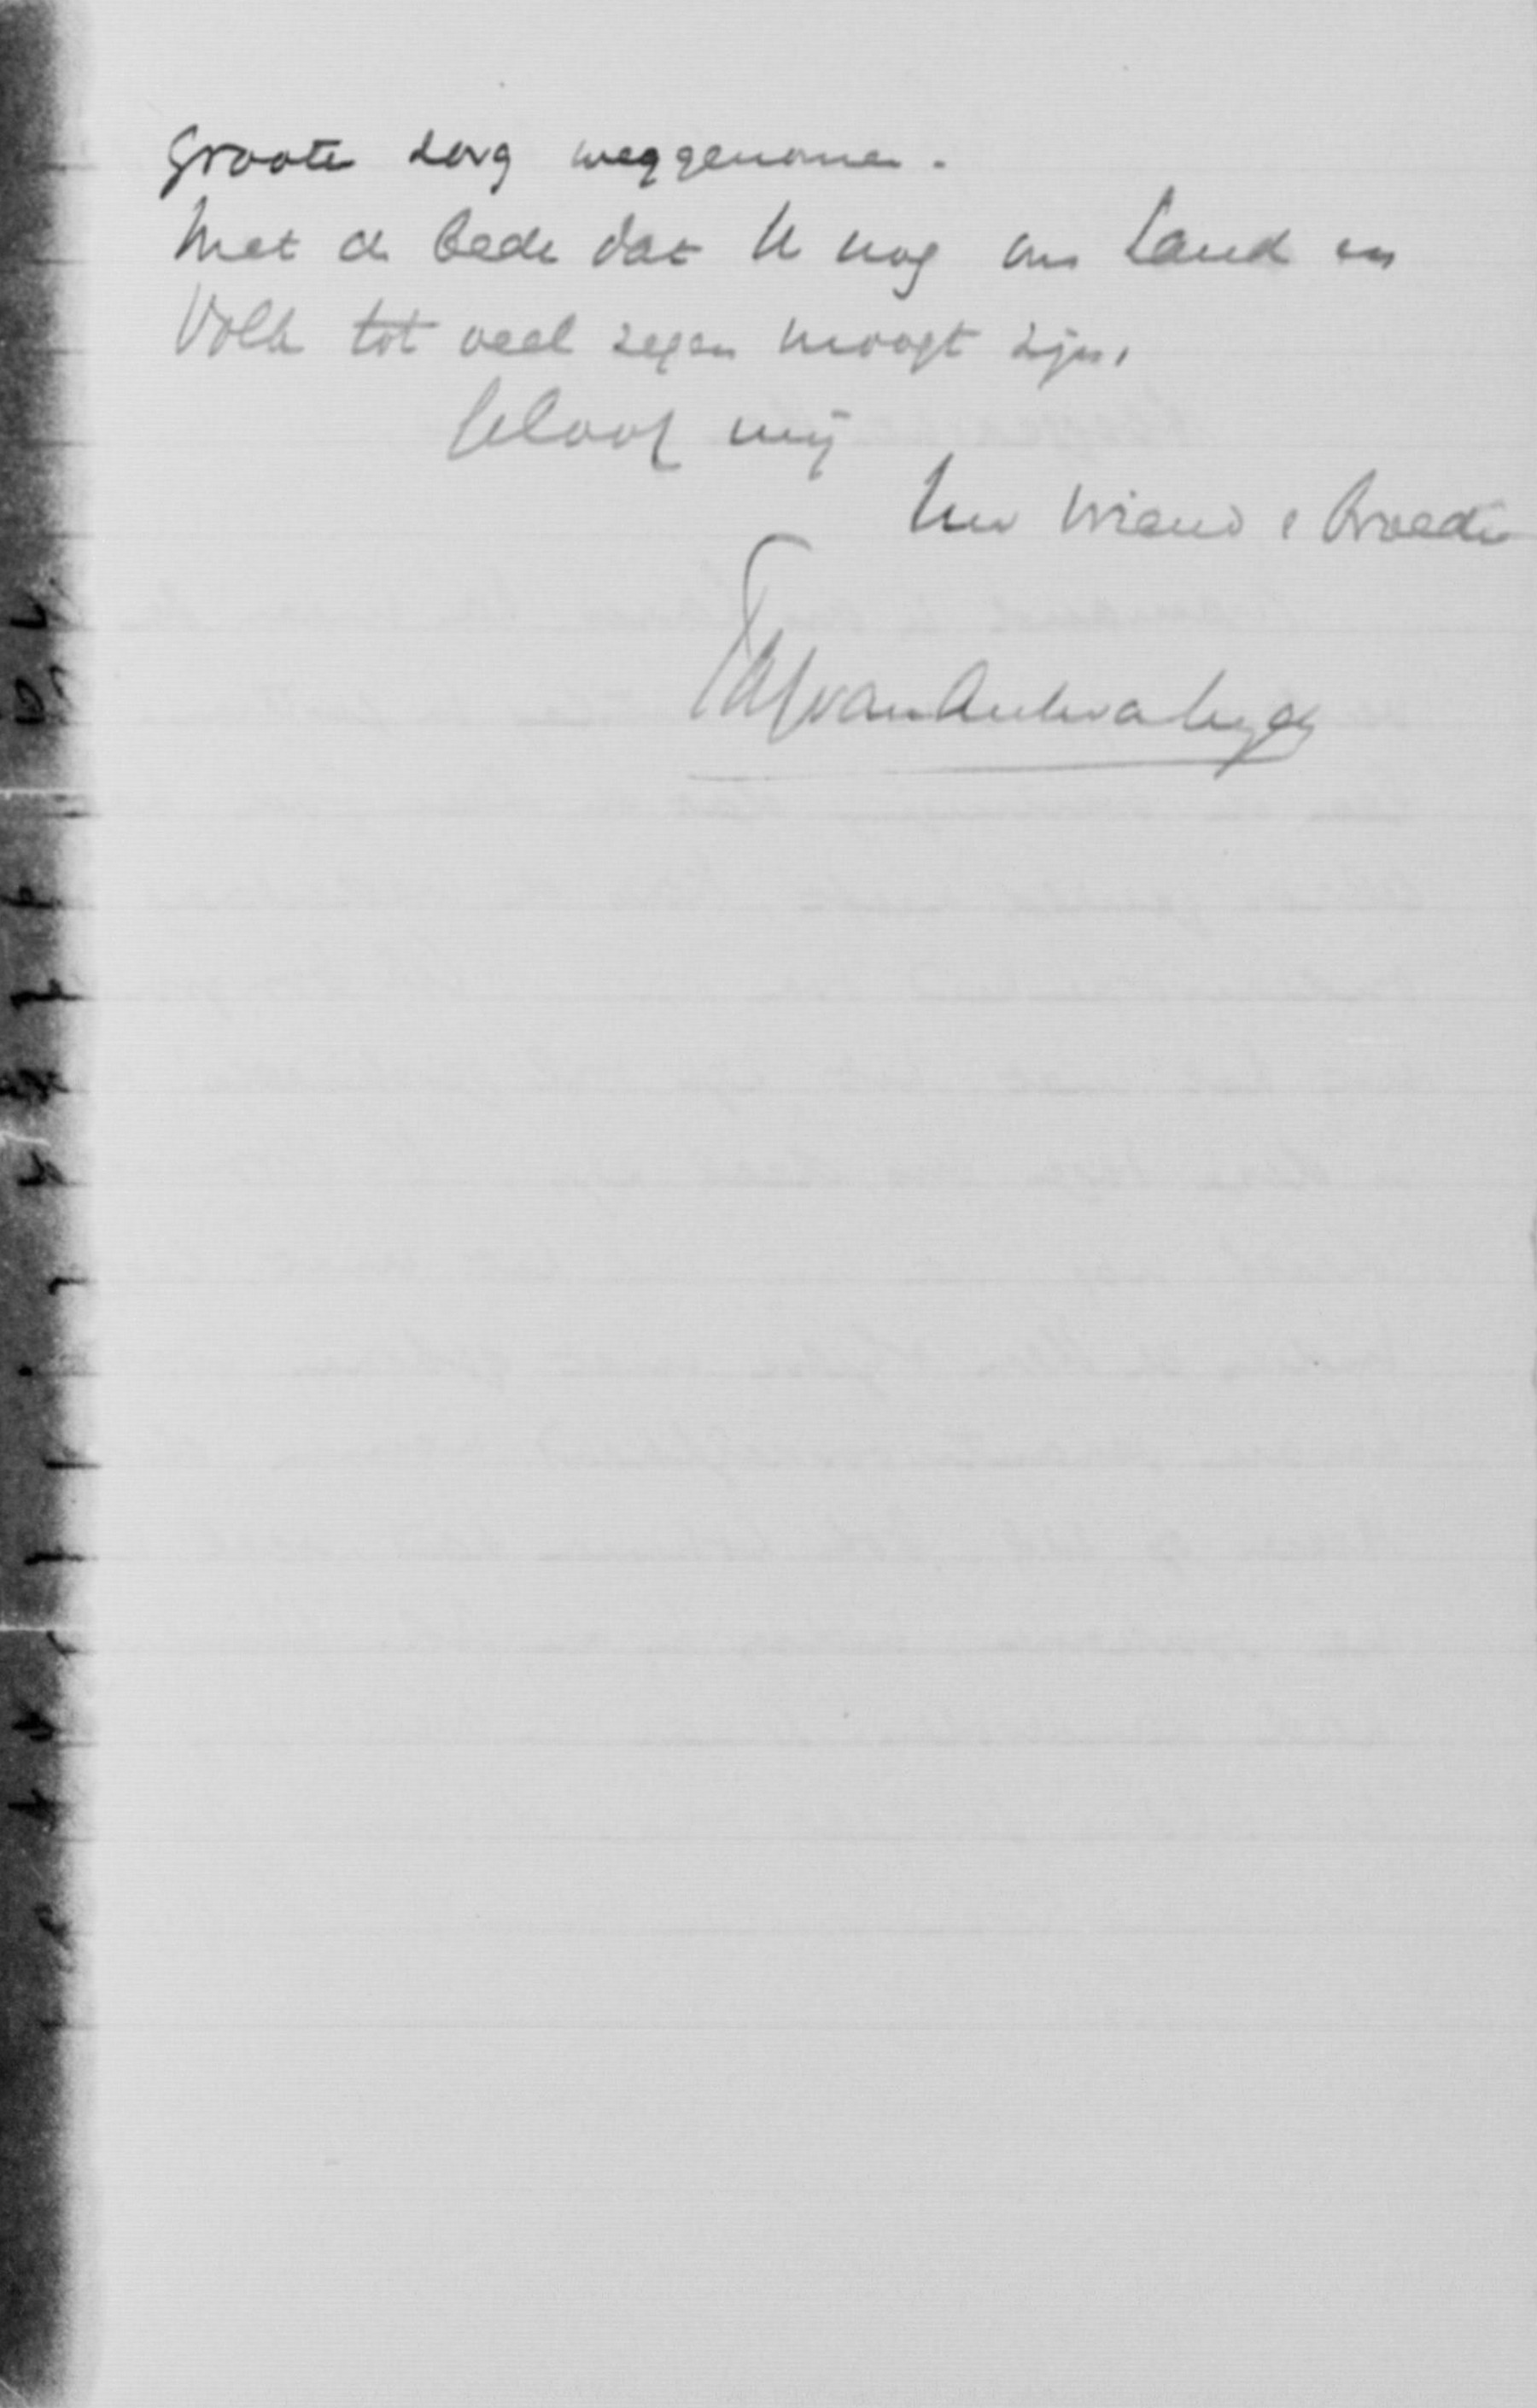 groote zorg weggenomen.
Met de bede dat U nog ons Land en
Volk tot veel zegen moogt zijn,
Geloof mij
Uw vriend & broeder